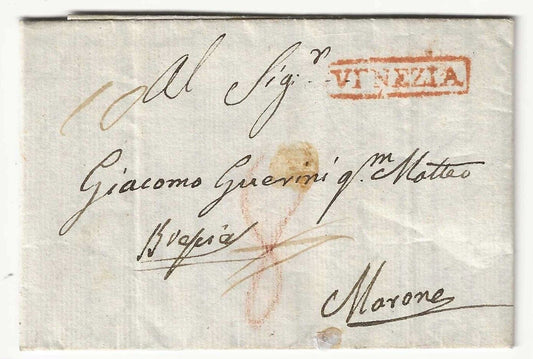 Al Sig.r VENEZIA
Giacomo Guerini q.m Matteo
Brescia
Marone